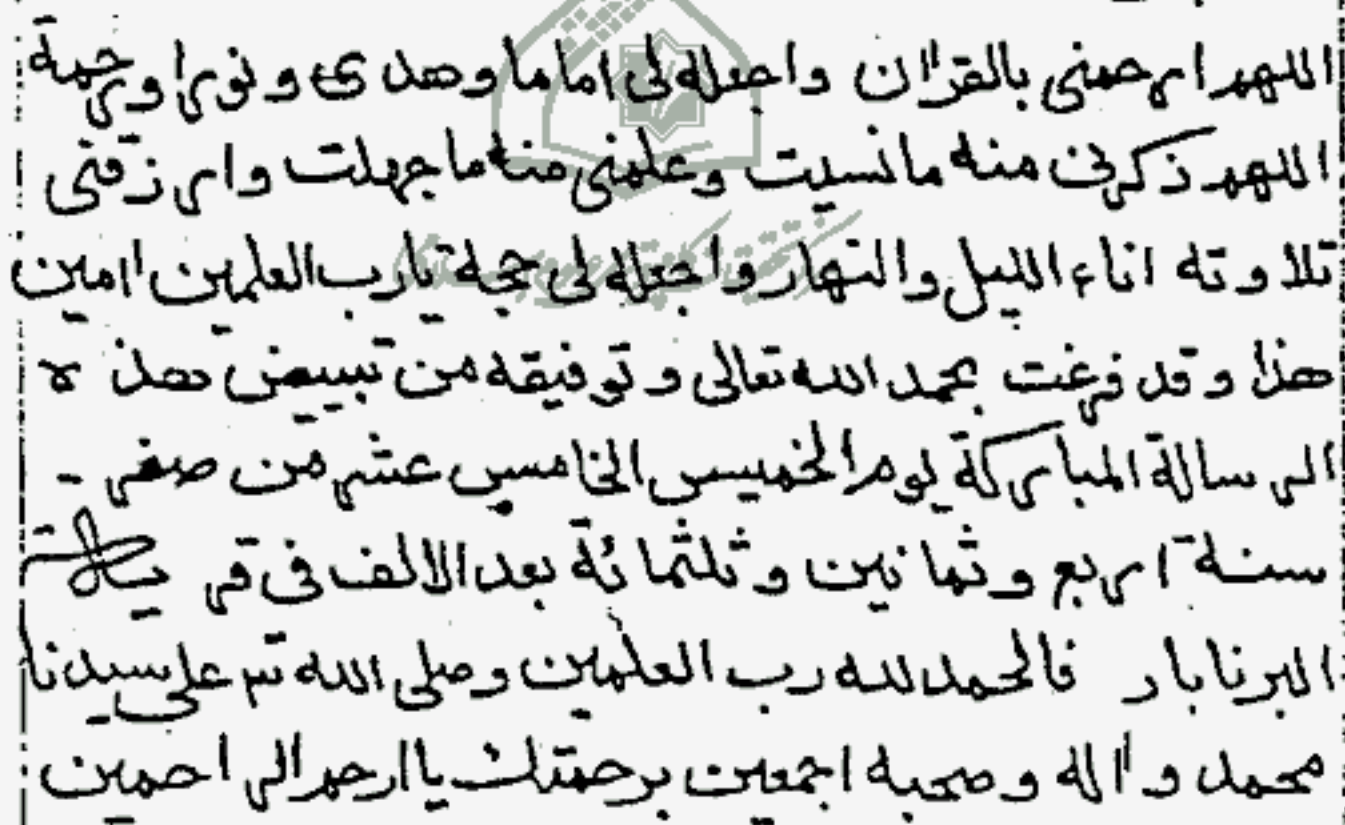 اللهم ارحمنى بالقرآن واجعله لى اماما وهدى ونورا ورحمة
اللهم ذكرنى منه مانسيت وعلمنى منه ماجهلت وارزقنى
تلاوته اناء الليل والنهار واجعله لى حجة يارب العلمين امين
هذا وقد فرغت بحمد الله تعالى وتوفيقه من تبييض هذه
الرسالة المباركة يوم الخميس الخامس عشر من صفر -
سنة اربع وثمانين وثلثمائة بعد الالف فى قرية
البرنابار فالحمد لله رب العلمين وصلى الله تم على سيدنا
محمد وآله وصحبه اجمعين برحمتك ياارحم الراحمين